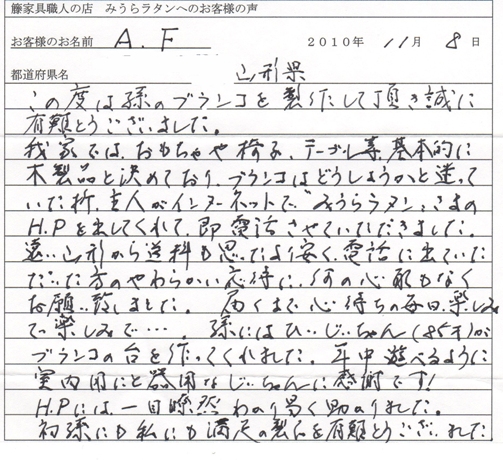 籐家具職人の店 みうらラタンへのお客様の声
お客様のお名前 A. F 2010年 11月 8日
都道府県名 山形県
この度は孫のブランコを製作して頂き誠に
有難とうございました。
我家では、おもちゃや椅子、テーブル等基本的に
木製品と決めており、ブランコはどうしようかと迷って
いた折、主人がインターネットで"みうらラタン"さまの
H.Pを出してくれて、即電話させていただきました。
遠い山形から送料も思ったより安く、電話に出ていた
だいた方のやわらかい応待に、何の心配もなく
お願い致しました。 届くまで心待ちの毎日、楽しみ
で楽しみで…。 孫にはひいじいちゃん(85才)が
ブランコの台を作ってくれました。年中遊べるように
室内用にと器用なじいちゃんに感謝です!
H.Pには、一目瞭然わかり易く助かりました。
初孫にも私にも満足の製品を有難とうございました